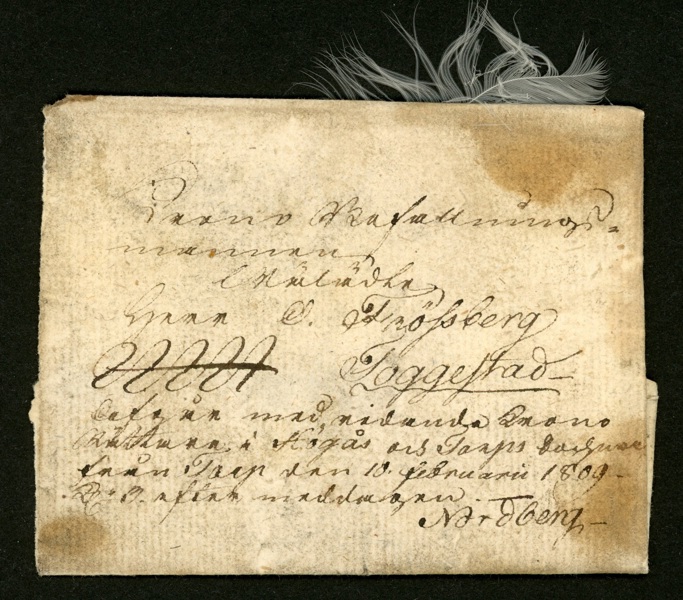 Crono Befallnings=
mannen
Wälädle
Herr O. Frössberg
Foggestad
Befordr med ridande Crono
Rättare i Högås och Torps Sochnar
från Torp den 10. februarii 1809
Kl: 3. efter meddagen.
Nordberg